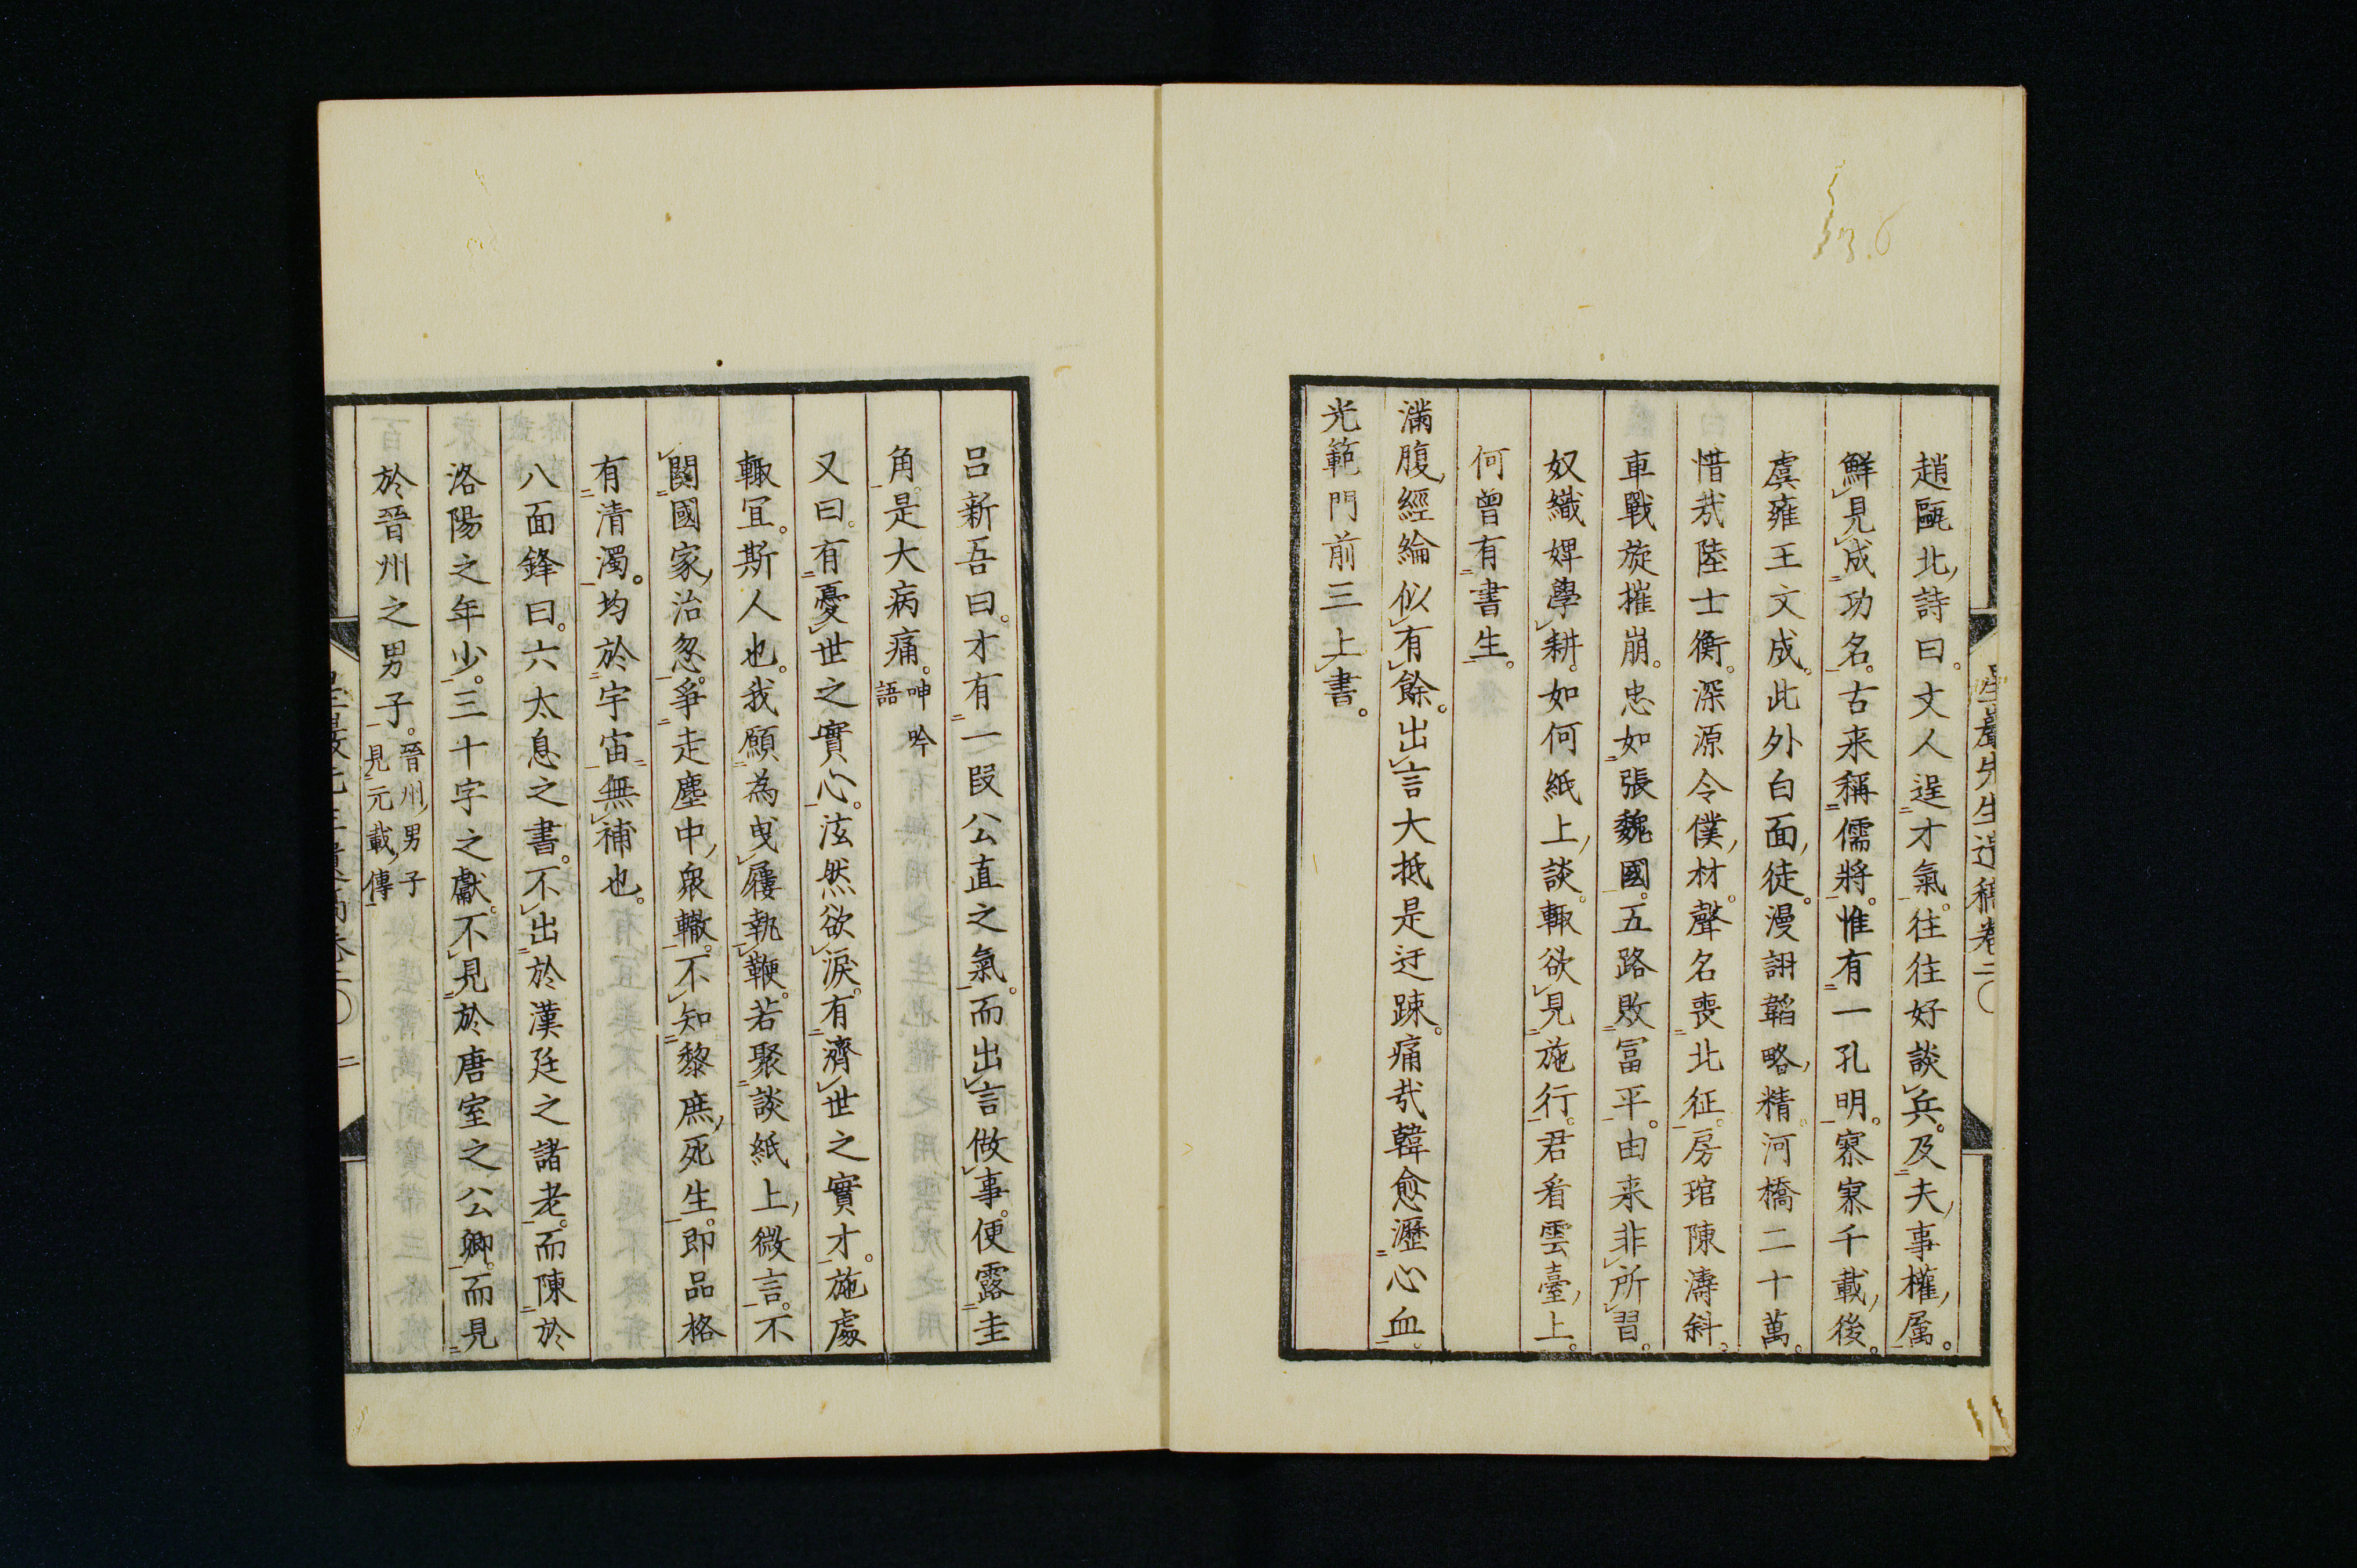 趙甌北詩曰。文人逞才氣。往往好談兵。及夫事權属。
鮮見成功名。古来稱儒將。惟有一孔明。寥寥千載後。
虞雍王文成。此外白面徒。漫詡韜略精。河橋二十萬。
惜哉陸士衡。深源令僕材。聲名喪北征。房琯陳濤斜。
車戰旋摧崩。忠如張魏國。五路敗冨平。由来非所習。
奴織婢學耕。如何紙上談。輒欲見施行。君看雲臺上。
何曾有書生。
滿腹經綸似有餘。出言大抵是迂踈。痛哉韓愈瀝心血。
光範門前三上書。
呂新吾曰。才有一段公直之氣。而出言做事。便露圭
角。是大病痛。呻吟語
又曰。有憂世之實心。泫然欲淚。有濟世之實才。施處
輒宜。斯人也。我願為曳履執鞭。若聚談紙上微言。不
関國家治忽。爭走塵中衆轍。不知黎庶死生。即品格
有清濁。均於宇宙無補也。
八面鋒曰。六太息之書。不出於漢廷之諸老。而陳於
洛陽之年少。三十字之獻。不見於唐室之公卿。而見
於晉州之男子。晉州男子見元載傳